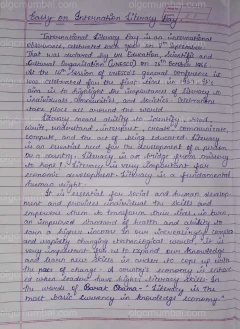 Essay on Internation Literacy Day.
International Literacy Day is an international
observance, celebrated each year on 8th September
That was declared by UN Education, Scientific and
Cultural Organization (UNESCO) on 26th October 1966
At the 14th Session of UNESCO's general Conference. It
was celebrated for the first time in 1967. It's
aim is to highlight the importance of literacy to
individuals, communities, and societies. Celebrations
take place all around the world.
Literacy means ability to Identify, read,
write, understand, interpret, create, communicate,
compute, and the act of being educated. Literacy
is an essential need for the development of a person
or a country. Literacy is a bridge from misery
to hope! Literacy is very important for
economic development. Literacy is a fundamental
human right.
It is essential for social and human develop-
ment and provides individual the skills and
empowers them to transform their lives, in turn
an improved standard of health and ability to
earn a higher income in our increasingly complex
and rapidly changing technological world. It is
very important for us to expand our knowledge
and learn new skills in order to keep up with
the pace of change. A country's economy
when have higher literacy skills. In
the words of Barack Obama - "Literacy is the
most basic currency in knowledge economy."